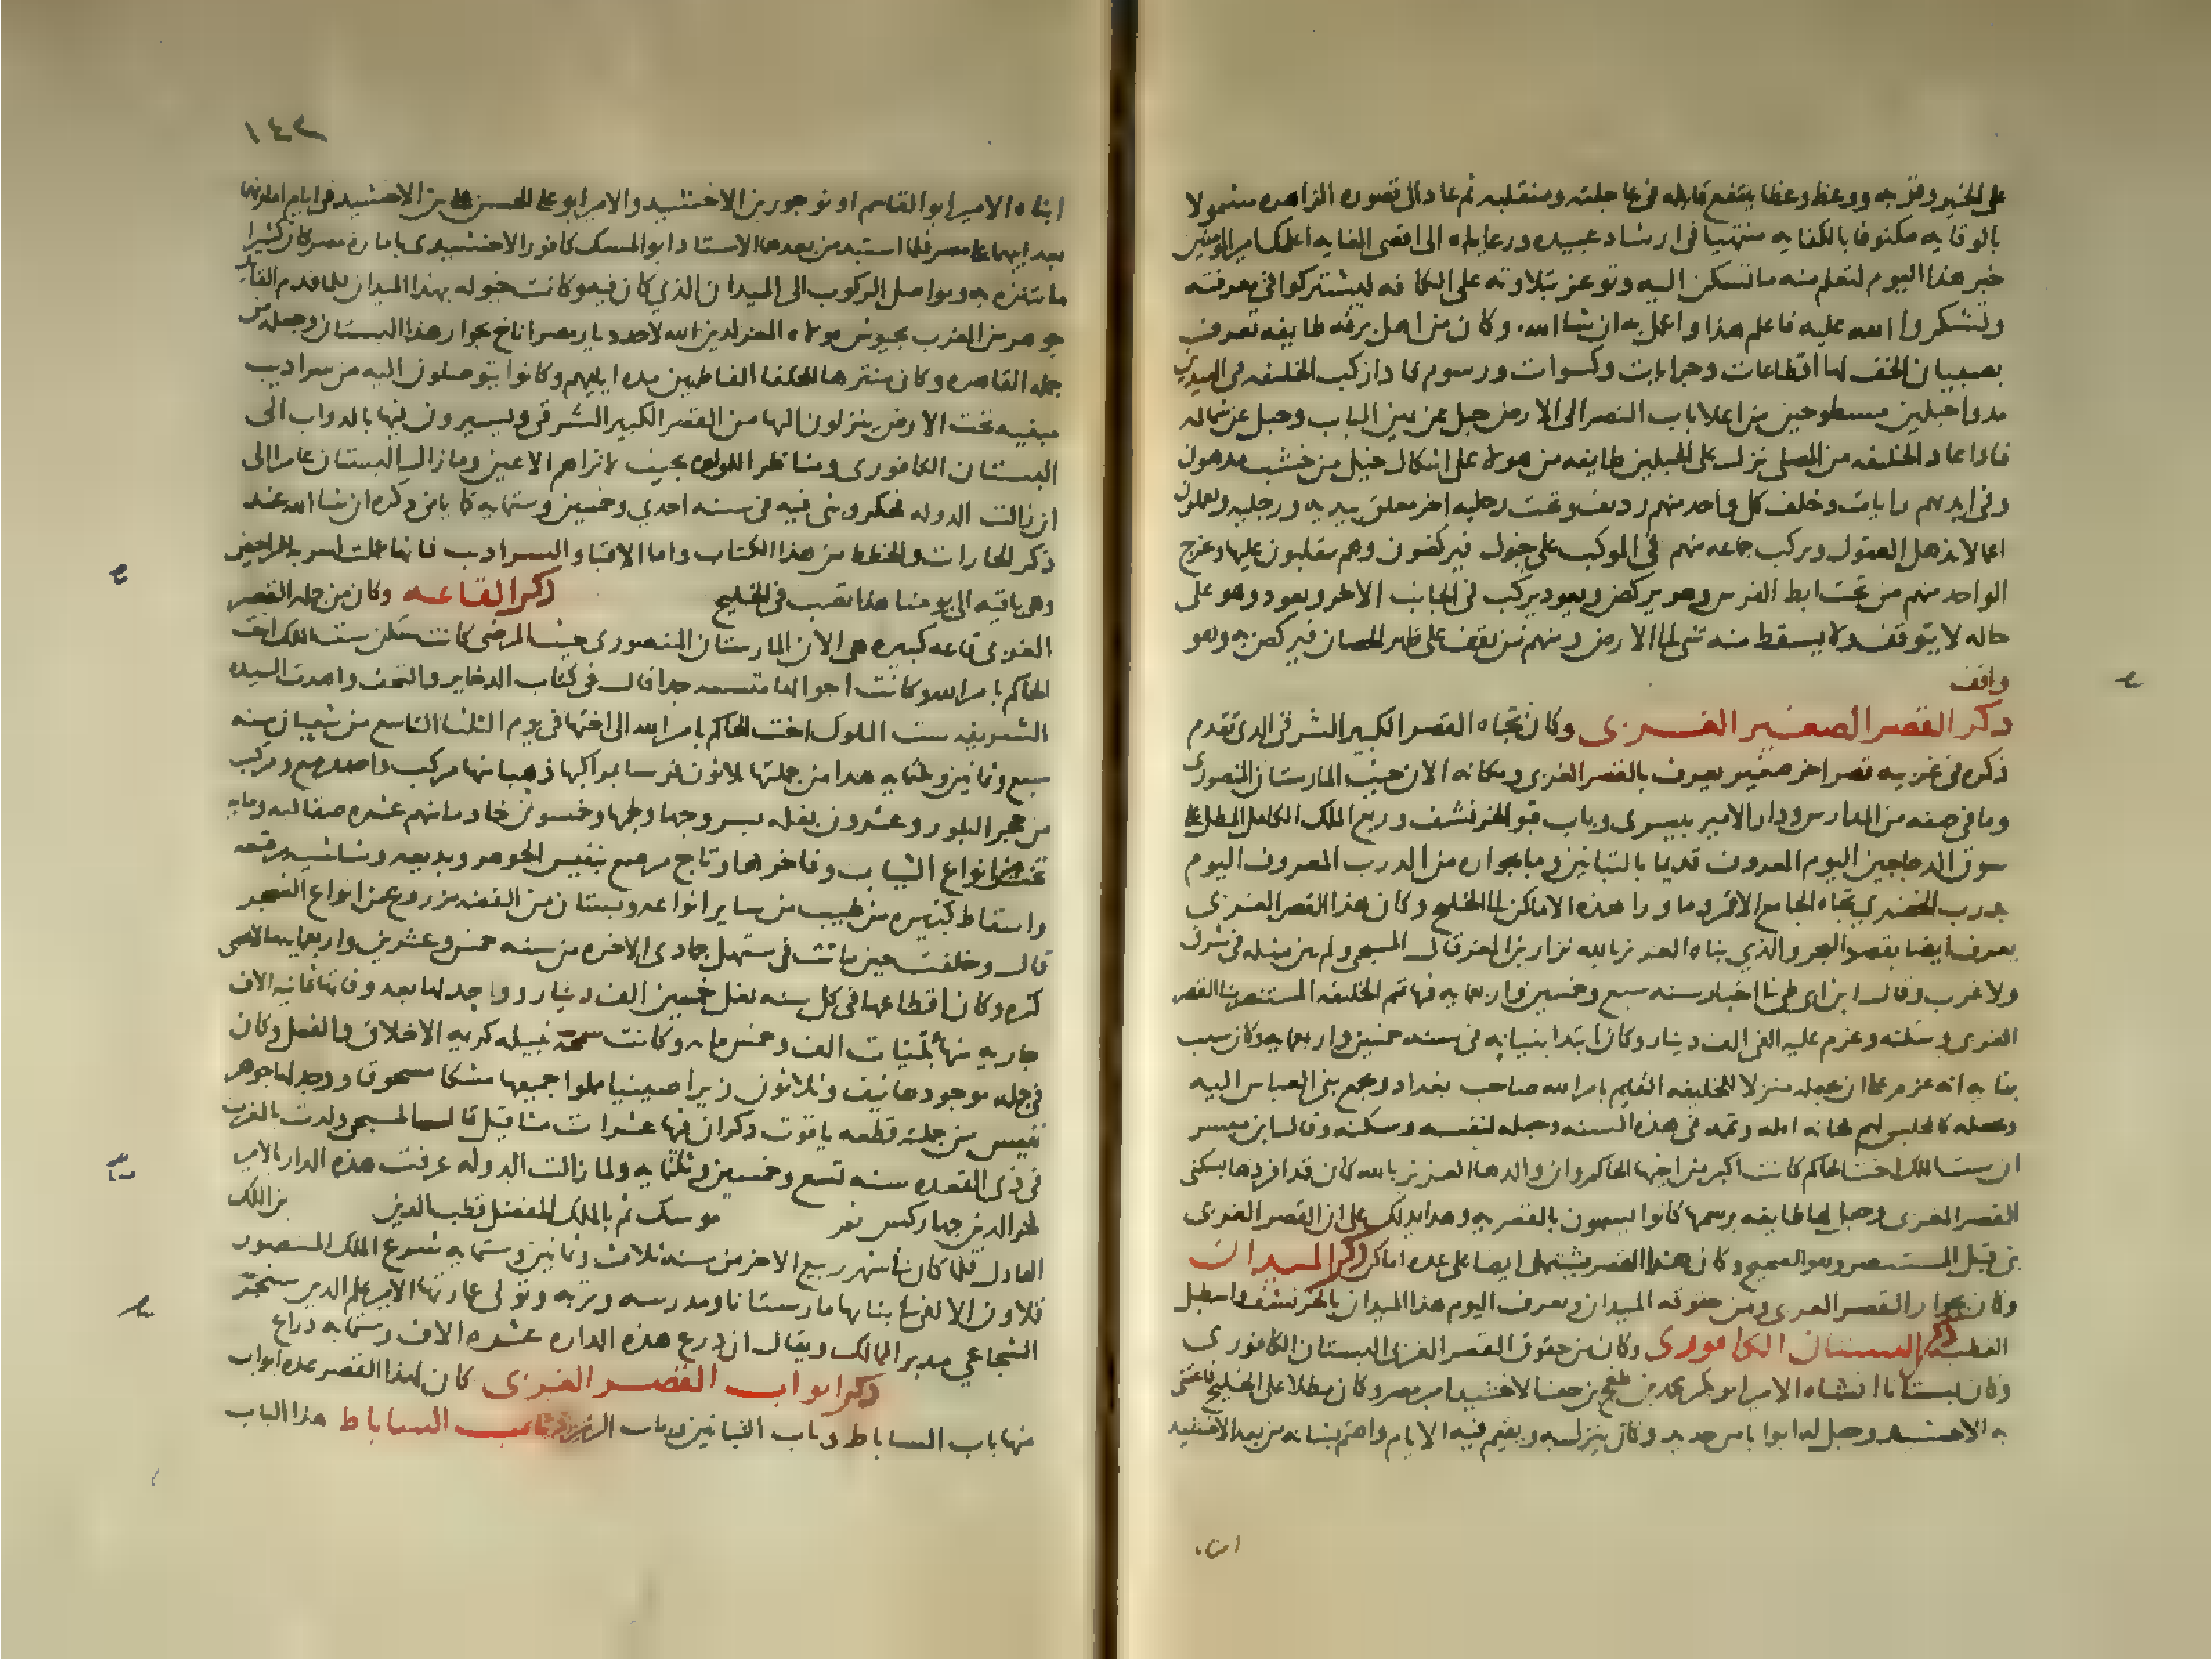 على الخير وفوجه ووعظ وعظا ينتفع قابله في عاجلته ومنقلبه ثم عاد الى قصوره الزاهره مشمولا
بالوقايه مكنوفا بالكفايه منتهيا في ارشاد عبيده ورعاياه الى اقصى الغايه اعلمك امير المومنين
خبر هذا اليوم لتعلم منه ما تسكن اليه وتوعز بتلاوته على الكافه ليشتركوا في معرفته
وليشكروا الله عليه فاعلم هذا واعمل به ان شا الله وكان من اهل برقه طايفه تعرف
بصبيان الخف لها اقطاعات وجرايات وكسوات ورسوم فاذا ركب الخليفه في العيدين
مدوا حبلين مسطوحين من اعلا باب النصر الى الارض حبل عن يمين الباب وحبل عن شماله
فاذا عاد الخليفه من المصلى نزل على الحبلين طايفه من هولا على اشكال خيل من خشب مدهون
وفي ايديهم رايات وخلف كل واحد منهم رديف وتحت رجليه اخر معلق بيديه ورجليه ويعملون
اعمالا تذهل العقول ويركب جماعه منهم في الموكب على خيول فيركضون وهم يتقلبون عليها ويخرج
الواحد منهم من تحت ابط الفرس وهو يركض ويعود يركب في الجانب الاخر ويعود وهو على
حاله لا يتوقف ولا يسقط منه شي الى الارض ومنهم من يقف على ظهر الحصان فيركض به وهو
واقف
ذكر القصر الصغير الغربي وكان تجاه القصر الكبير الشرقي الذي تقدم
ذكره في غربيه قصر اخر صغير يعرف بالقصر الغربي ومكانه الان حيث المارستان المنصوري
وما في صفه من المدارس ودار الامير بيسري وباب قبو الخرنشف وربع الملك الكامل المطل على
سوق الدجاجين اليوم المعروف قديما بالتبانين وما بجواره من الدرب المعروف اليوم
بدرب الخضيري تجاه الجامع الاقمر وما ورا هذه الاماكن الى الخليج وكان هذا القصر الغربي
يعرف ايضا بقصر البحر والذي بناه العزيز بالله نزار بن المعز قال المسبحي ولم يبن مثله في شرق
ولا غرب وقال ابن ابي طي في اخبار سنه سبع وخمسين واربعمايه فيها تمم الخليفه المستنصر بنا القصر
الغربي وسكنه وغرم عليه الفي الف دينار وكان ابتدا بنيانه في سنه خمسين واربعمايه وكان سبب
بنايه انه عزم على ان يجعله منزلا للخليفه القايم بامر الله صاحب بغداد ويجمع بني العباس اليه
ويجعله كالمجلس لهم فخانه امله وتممه في هذه السنه وجعله لنفسه وسكنه وقال ابن ميسر
ان ست الملك اخت الحاكم كانت اكبر من اخيها الحاكم وان والدها العزيز بالله كان قد افردها بسكنى
القصر الغربي وجعل لها طايفه برسمها كانوا يسمون بالقصريه وهذا يدلك على ان القصر الغربي
بني قبل المستنصر وهو الصحيح وكان هذا القصر يشتمل ايضا على عده اماكن ذكر الميدان
وكان بجوار القصر الغربي ومن حقوقه الميدان ويعرف اليوم هذا الميدان بالخرنشف واسطبل
القطبيه ذكر البستان الكافوري وكان من حقوق القصر الغربي البستان الكافوري
وكان بستانا انشاه الامير ابو بكر محمد بن طغج بن جف الاخشيد امير مصر وكان مطلا على الخليج فاعتنى
به الاخشيد وجعل له ابوابا من حديد وكان ينزل به ويقيم فيه الايام واهتم بشانه من بعد الاخشيد
ابنا
١٤٢
ابناه الامير ابو القاسم اونوجور بن الاخشيد والامير ابو علي الحسن علي بن الاخشيد في ايام امارتهما
بعد ابيهما على مصر فلما استبد من بعدهما الاستاد ابو المسك كافور الاخشيدي بامارة مصر كان كثيرا
ما يتنزه به ويواصل الركوب الى الميدان الذي كان فيه وكانت خيوله بهذا الميدان فلما قدم القايد
جوهر من المغرب بجيوش مولاه المعز لدين الله لاخذ ديار مصر اناخ بجوار هذا البستان وجعله من
جمله القاهره وكان منتزها للخلفا الفاطميين مده ايامهم وكانوا يتوصلون اليه من سراديب
مبنيه تحت الارض ينزلون اليها من القصر الكبير الشرقي ويسيرون فيها بالدواب الى
البستان الكافوري ومناظر اللولوه بحيث لا تراهم الاعين وما زال البستان عامرا الى
ان زالت الدوله فحكر وبني فيه في سنه احدي وخمسين وستمايه كما ياتي ذكره ان شا الله عند
ذكر الحارات والخطط من هذا الكتاب واما الاقبا والسراديب فانها عملت اسربه للمراحيض
وهي باقيه الى يومنا هذا تصب في الخليج ذكر القاعه وكان من جمله القصر
الغربي قاعه كبيره هي الان المارستان المنصوري حيث المرضى كانت سكن ست الملك اخت
الحاكم بامر الله وكانت احوالها متسعه جدا قال في كتاب الدخاير والتحف واهدت السيده
الشريفه ست الملوك اخت الحاكم بامر الله الى اخيها في يوم الثلثا التاسع من شعبان سنه
سبع وثمانين وثلثمايه هدايا من جملتها ثلاثون فرسا بمراكبها ذهبا منها مركب واحد مرصع ومركب
من حجر البلور وعشرون بغله بسروجها ولجمها وخمسون خادما منهم عشره صقالبه ومايه
تخت من انواع الثياب وفاخرها وتاج مرصع بنفيس الجوهر وبديعه وشاشيه مرصعه
واسفاط كثيره من طيب من ساير انواعه وبستان من الفضه مزروع من انواع الشجر
قال وخلفت حين ماتت في مستهل جمادى الاخره من سنه خمس وعشرين واربعمايه ما لا يحصى
كثره وكان اقطاعها في كل سنه يغل خمسين الف دينار ووجد لها بعد وفاتها ثمانيه الاف
جاريه منها بنيات الف وخمس مايه وكانت سمحه نبيله كريمه الاخلاق والفعل وكان
في جمله موجودها نيف وثلاثون زيرا صينيا مملوا جميعها مسكا مسحوقا ووجد لها جوهر
نفيس من جملته قطعه ياقوت ذكر ان فيها عشرات مثاقيل قال المسبحي ولدت بالمغرب
في ذي القعده سنه تسع وخمسين وثلثمايه ولما زالت الدوله عرفت هذه الدار بالامير
فخر الدين جهاركس ثم موسك ثم بالملك المفضل قطب الدين بن الملك
العادل فلما كان في شهر ربيع الاخر من سنه ثلاث وثمانين وستمايه شرع الملك المنصور
قلاون الالفي في بنايها مارستانا ومدرسه وتربه وتولى عمارتها الامير علم الدين سنجر
الشجاعي مدبر الممالك ويقال ان ذرع هذه الداره عشره الاف وستمايه دراع
ذكر ابواب القصر الغربي كان لهذا القصر عده ابواب
منها باب الساباط وباب التبانين وباب الزمرد باب الساباط هذا الباب